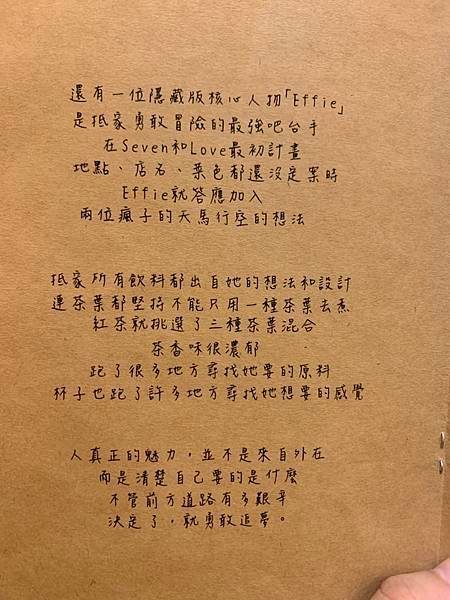 還有一位隱藏版核心人物「Effie」
是抵家勇敢冒險的最強吧台手
在Seven和Love最初計畫
地點、店名、菜色都還沒定案時
Effie就答應加入
兩位瘋子的天馬行空的想法
抵家所有飲料都出自她的想法和設計
連茶葉都堅持不能只用一種茶葉去煮
紅茶就挑選了三種茶葉混合
茶香味很濃郁
跑了很多地方尋找她要的原料
杯子也跑了許多地方尋找她想要的感覺
人真正的魅力，並不是來自外在
而是清楚自己要的是什麼
不管前方道路有多艱辛
決定了，就勇敢追夢。